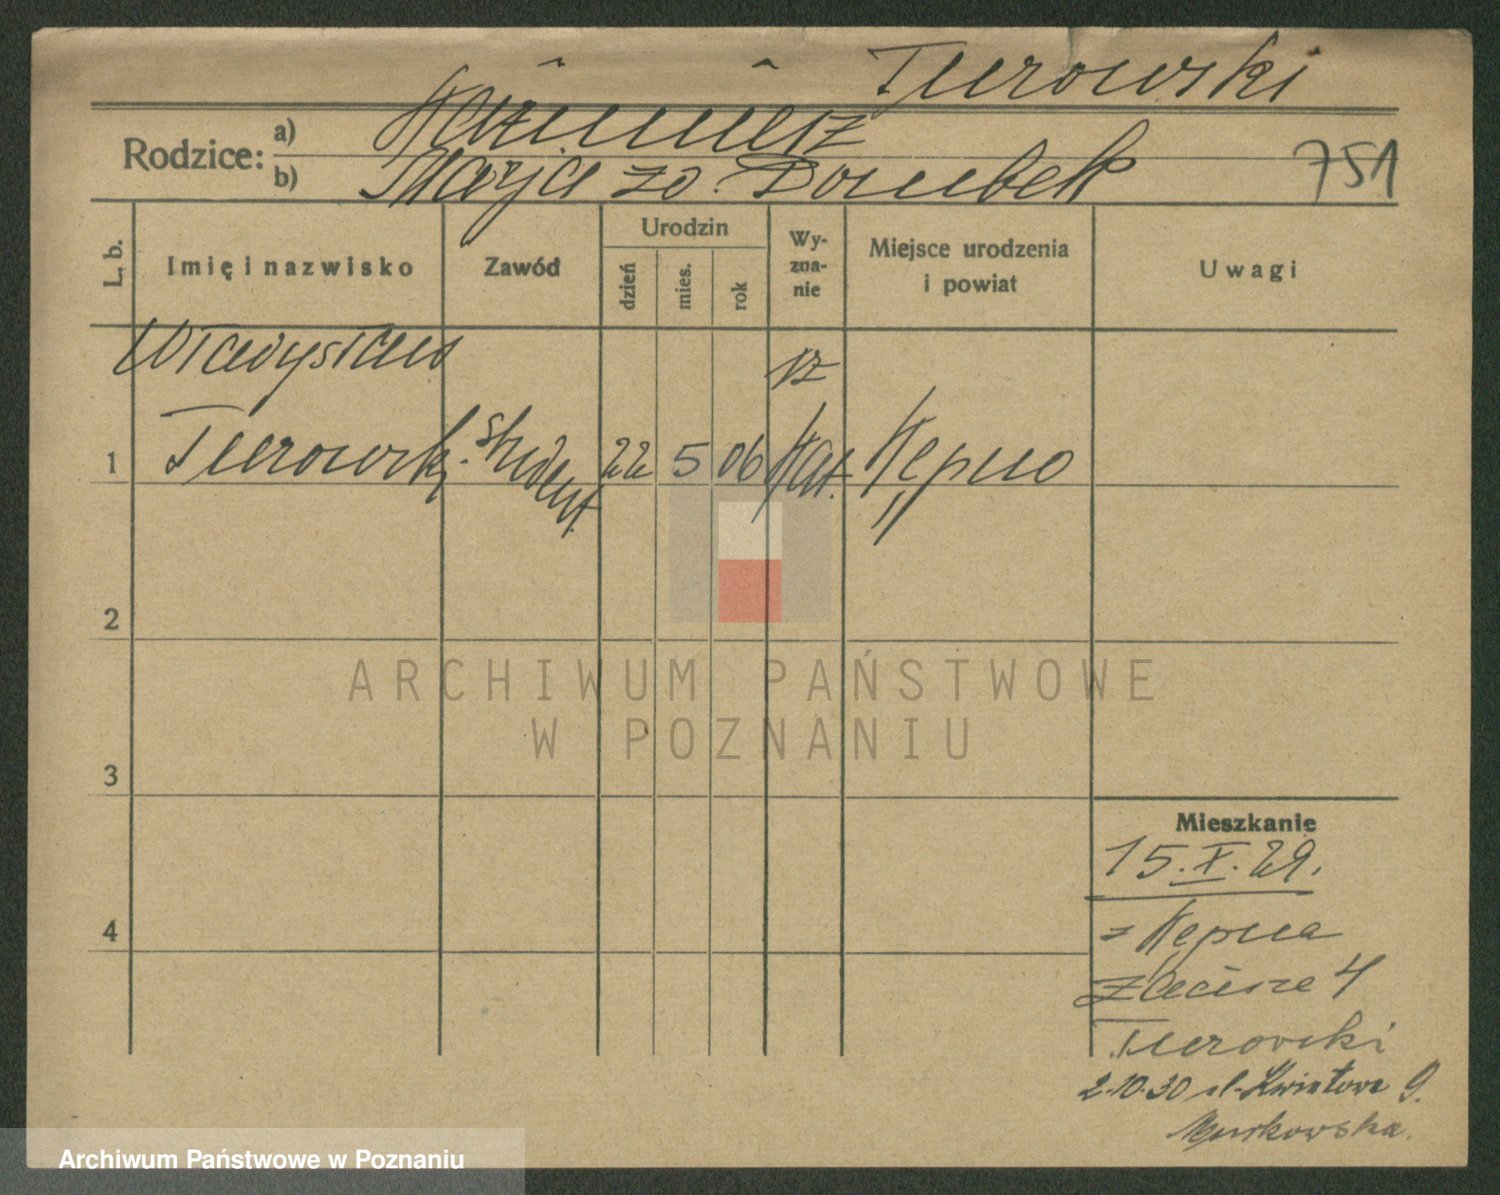 Turowski
Rodzice: a) Kazimierz
b) Marja zd. Dombek
751
L. b. Imię i nazwisko Zawód Urodzin dzień mies. rok Wy-zna-nie Miejsce urodzenia i powiat Uwagi
Władysław rz
1 Turowski student 22 5 06 kat. Kępno
2
3
4
Mieszkanie
15.X.29.
z Kępna
Zacisze 4
Turowski
2.10.30 ul. Kwiatowa 9.
ARCHIWUM PAŃSTWOWE
W POZNANIU
Archiwum Państwowe w Poznaniu